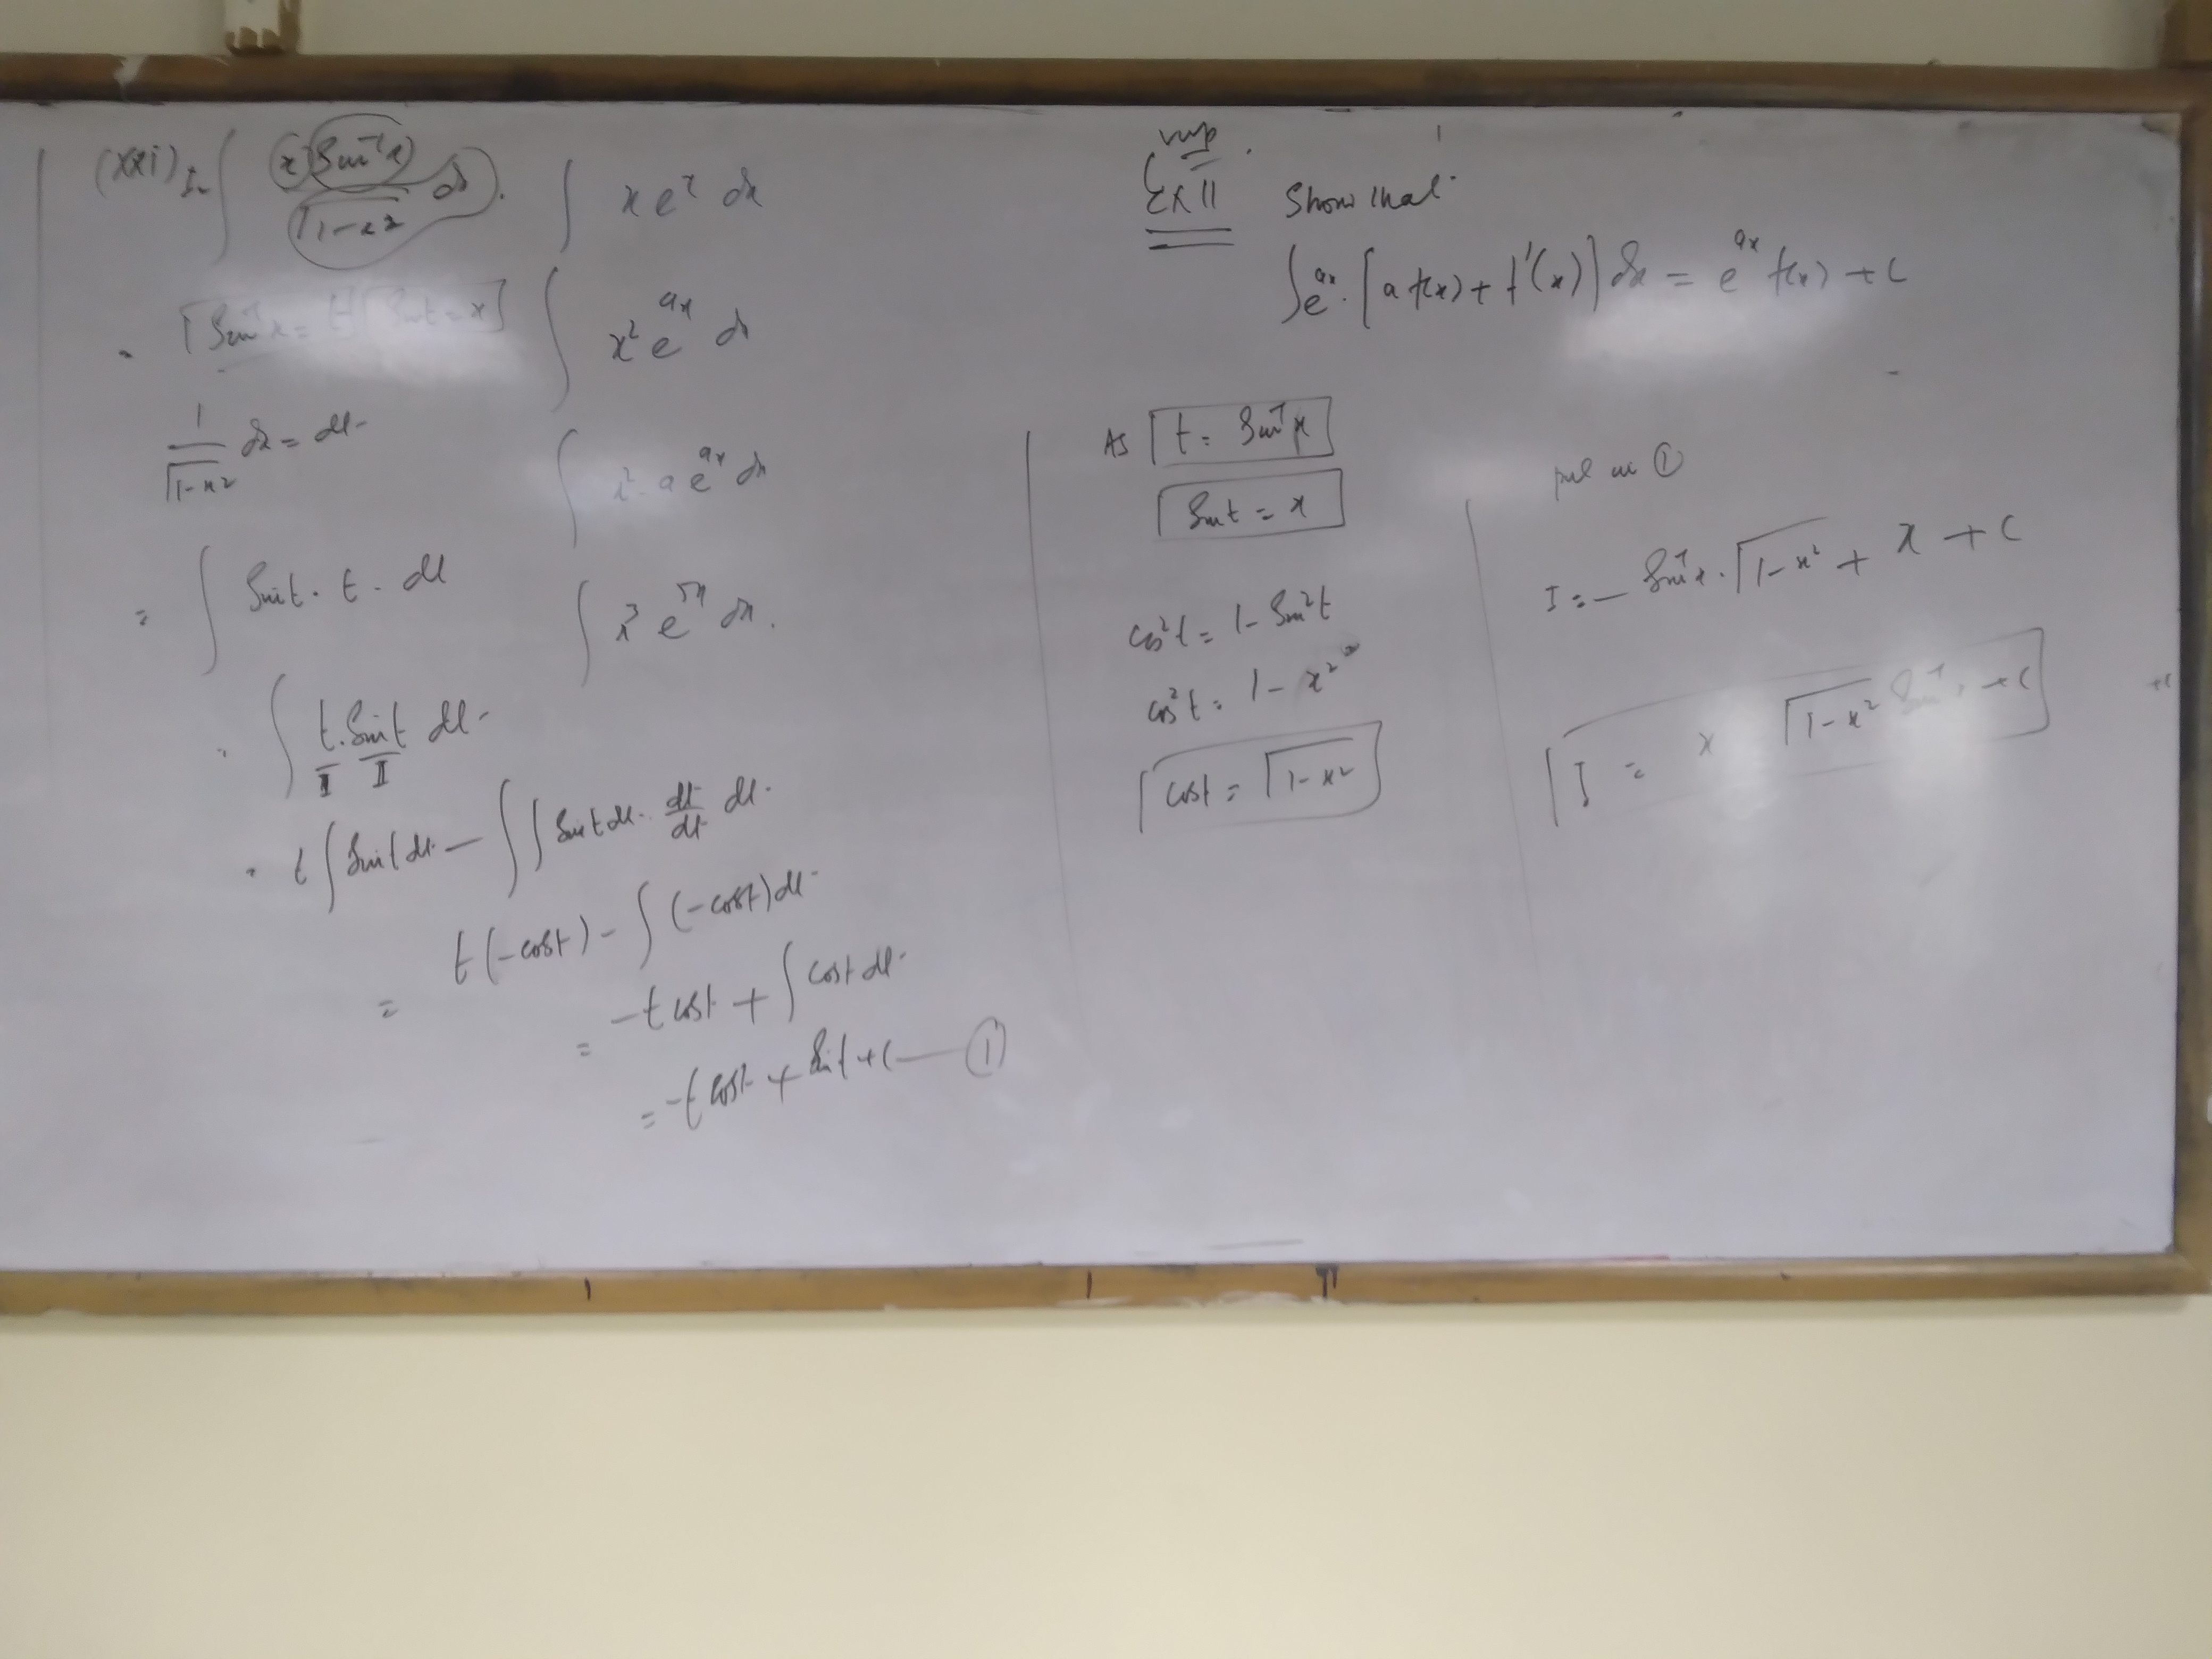 (xxi) I = ∫ x Sin⁻¹x / √1-x² dx.
Sin⁻¹x = t Sint = x
1/√1-x² dx = dt
= ∫ Sint . t . dt
= ∫ t . Sint dt
I II
= t ∫ Sint dt - ∫ ∫ Sint dt . dt/dt dt.
= t(-cost) - ∫ (-cost) dt
= -t cost + ∫ cost dt
= -t cost + Sint + c — ①
∫ x eˣ dx
∫ x² eᵃˣ dx
∫ x² . a eᵃˣ dx
∫ x³ e⁵ˣ dx.
Imp
Ex 11 Show that
∫ eᵃˣ . [a f(x) + f'(x)] dx = eᵃˣ f(x) + c
As t = Sin⁻¹x
Sint = x
cos²t = 1 - Sin²t
cos²t = 1 - x²
cost = √1-x²
put in ①
I = - Sin⁻¹x . √1-x² + x + c
I = x √1-x² Sin⁻¹x + c
+c